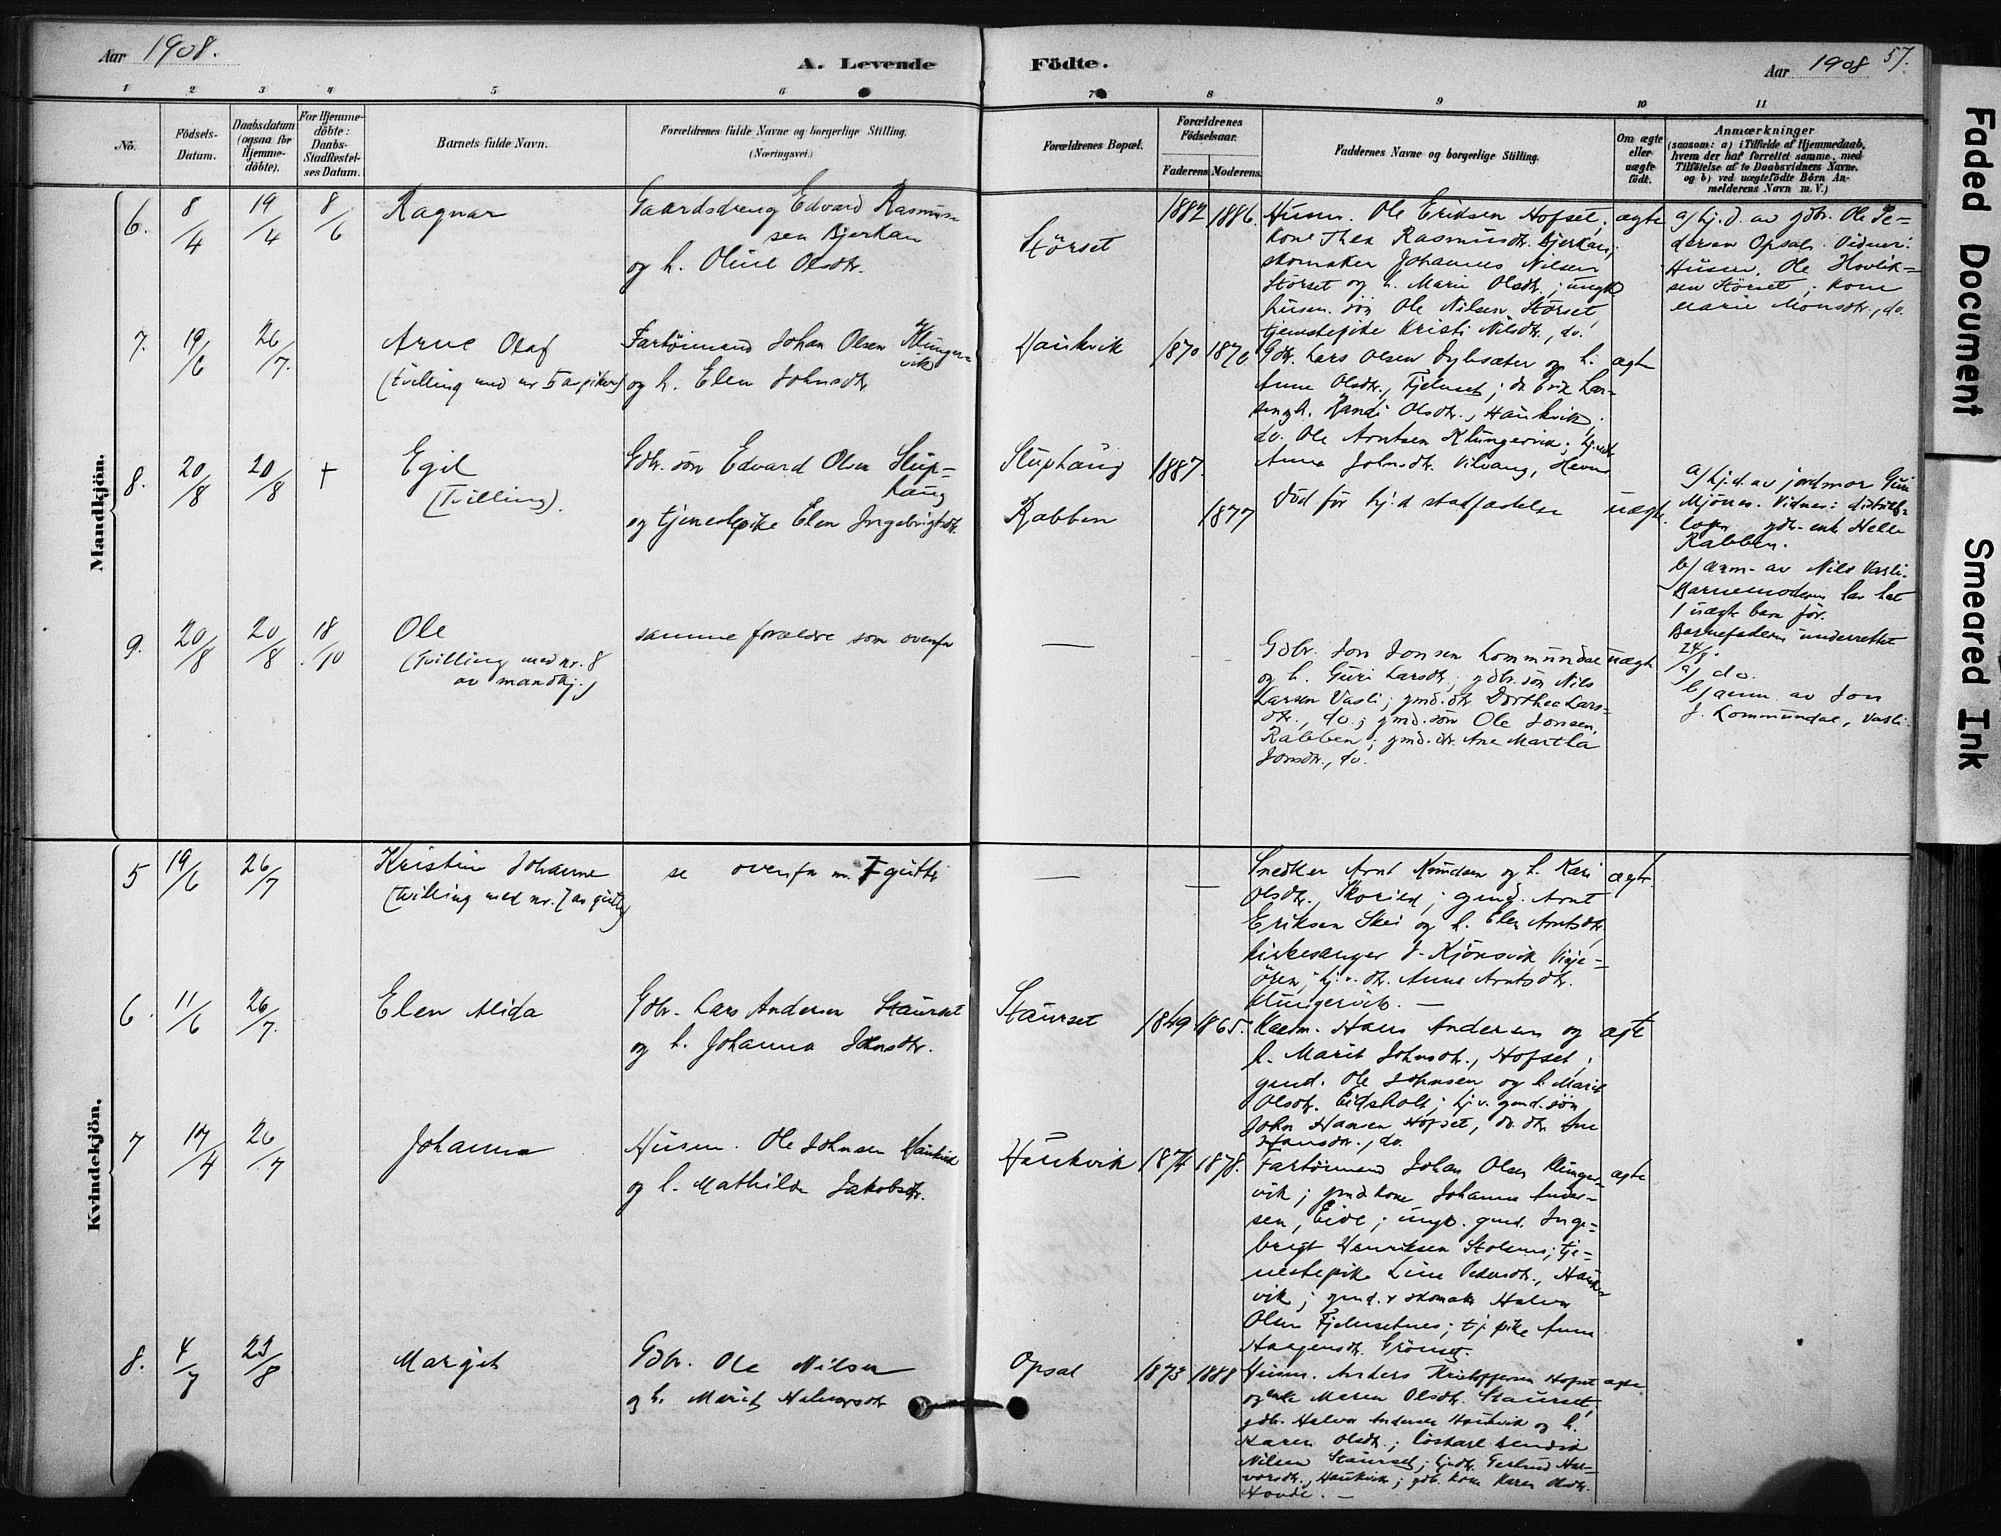 Aar 1908.
A. Levende Födte.
Aar 1908
57.
1 2 3 4 5 6 7 8 9 10 11
No.
Födsels-
Datum.
Daabsdatum
(ogsaa for
Hjemme-
döbte).
For Hjemme-
döbte:
Daabs-
Stadfæstel-
ses Datum.
Barnets fulde Navn.
Forældrenes fulde Navne og borgerlige Stilling.
(Næringsvei.)
Forældrenes Bopæl.
Forældrenes
Födselsaar.
Faderens Moderens
Faddernes Navne og borgerlige Stilling.
Om ægte
eller
uægte
födt.
Anmærkninger
(saasom: a) i Tilfælde af Hjemmedaab,
hvem der har forrettet samme, med
Tilföielse af to Daabsvidners Navne.
og b) ved uægtefödte Börn An-
melderens Navn m. V.)
Mandkjön.
6. 8/4 19/4 8/6
Ragnar
Gaardsdreng Edvard Rasmus
sen Bjerkan
og h. Oline Olsdtr.
Störset
1882 1886.
Husm. Ole Eriksen Hofset;
kone Thea Rasmusdtr. Bjerkan;
skomaker Johannes Nilsen
Störset og h. Marie Olsdtr.; ungk
husm. sön Ole Nilsen Störset,
tjenestepike Kristi Nilsdtr., do.
ægte
a/ hj.d. av gdbr. Ole Pe-
dersen Opsal. Vidner:
Husm. Ole
sen Störset; kone
Marie Monsdtr., do.
7. 19/6 26/7.
Arne Olaf
(tvilling med nr 5 av piker)
Fartöimand Johan Olsen Klunger-
vik
og h. Elen Johnsdtr
Haukvik
1870 1870
Gdbr. Lars Olsen og h.
Anne Olsdtr., ; do Erik Lar-
sen og h. Randi Olsdtr., Haukvik;
do. Ole Arntsen Klungervik;
Anna Johnsdtr.
ægte
8. 20/8 20/8 +
Egil
(Tvilling).
Gdbr. sön Edvard Olsen Slup-
haug
og tjenestepike Elen Ingebrigtsdtr.
Sluphaug
Rabben
1887.
1877
Död för hj.d stadfæstelse
uægte
a/ hj.d. av jordmor Guri
Mjönes. Vidner: distrikts-
læge, gdbr. enke
Rabben.
b/ anm. av Nils Vasli.
Barnemoderen har hat
1 uægte barn för.
Barnefaderen underrettet
24/8.
9. 20/8 20/8 18/10
Ole
(Tvilling med nr. 8
av mandkj.)
samme forældre som ovenfor
—
Gdbr. Jon Jonsen Lommundal
og h. Guri Larsdtr.; gdbr. sön Nils
Larsen Vasli; gmd. dtr Dorthea Lars-
dtr., do.; gmd. sön Ole Jonsen,
Rabben; gmd. dtr. Ane Martha
Jonsdtr., do.
uægte
a/ do.
b/ anm. av Jon
J. Lommundal, Vasli.
Kvindekjön.
5 19/6 26/7
Kristine Johanne
(tvilling med nr. 7 av gutter)
se ovenfor nr. 7 gutter
—
—
Snedker Arnt Knudsen og h. Kari
Olsdtr., ; gmd. Arnt
Eriksen Skei og h. Elen Arntsdtr.
kirkesanger J. Kjönsvik Vigje-
ören; hj.v. dtr. Anna Arntsdtr.
Klungervik. —
ægte
6. 11/6 26/7.
Elen Alida
Gdbr. Lars Andersen Staurset
og h. Johanna Johnsdtr.
Staurset
1849 1865.
Hans Andersen og
h. Marit Johnsdtr., Hofset;
gmd. Ole Johnsen og h. Marit
Olsdtr. Eidsholt; hj.v. gmd. sön
John Hansen Hofset, do. dtr. Ane
Hansdtr., do.
ægte
7 17/4 26/7
Johanna
Husm. Ole Johnsen Haukvik
og h. Mathilde Jakobsdtr.
Haukvik
1874 1878.
Fartöimand Johan Olsen Klunger-
vik; gmd. kone Johanna Ander-
sen, Eide; ungk. gmd. Inge-
brigt Henriksen ; tje-
nestepike Line Pedersdtr., Hauk-
vik; gmd. & skomaker Halvor
Olsen Fjelnsetnes; tj. pike Anne
Haagensdtr. Grönset.
ægte
8. 4/7 23/8
Margit
Gdbr. Ole Nilsen
og h. Marit Halvorsdtr
Opsal
1873 1888
Husm. Anders Kristoffersen Hofset
og enke Maren Olsdtr. Staurset,
gdbr. Halvor Andersen Haukvik og h.
Karen Olsdtr.; löskarl
Nilsen Staurset; Gertrud Hal-
vorsdtr., Haukvik; gdb. kone Karen Olsdtr.
Hovde. —
ægte
Faded Document
Smeared Ink